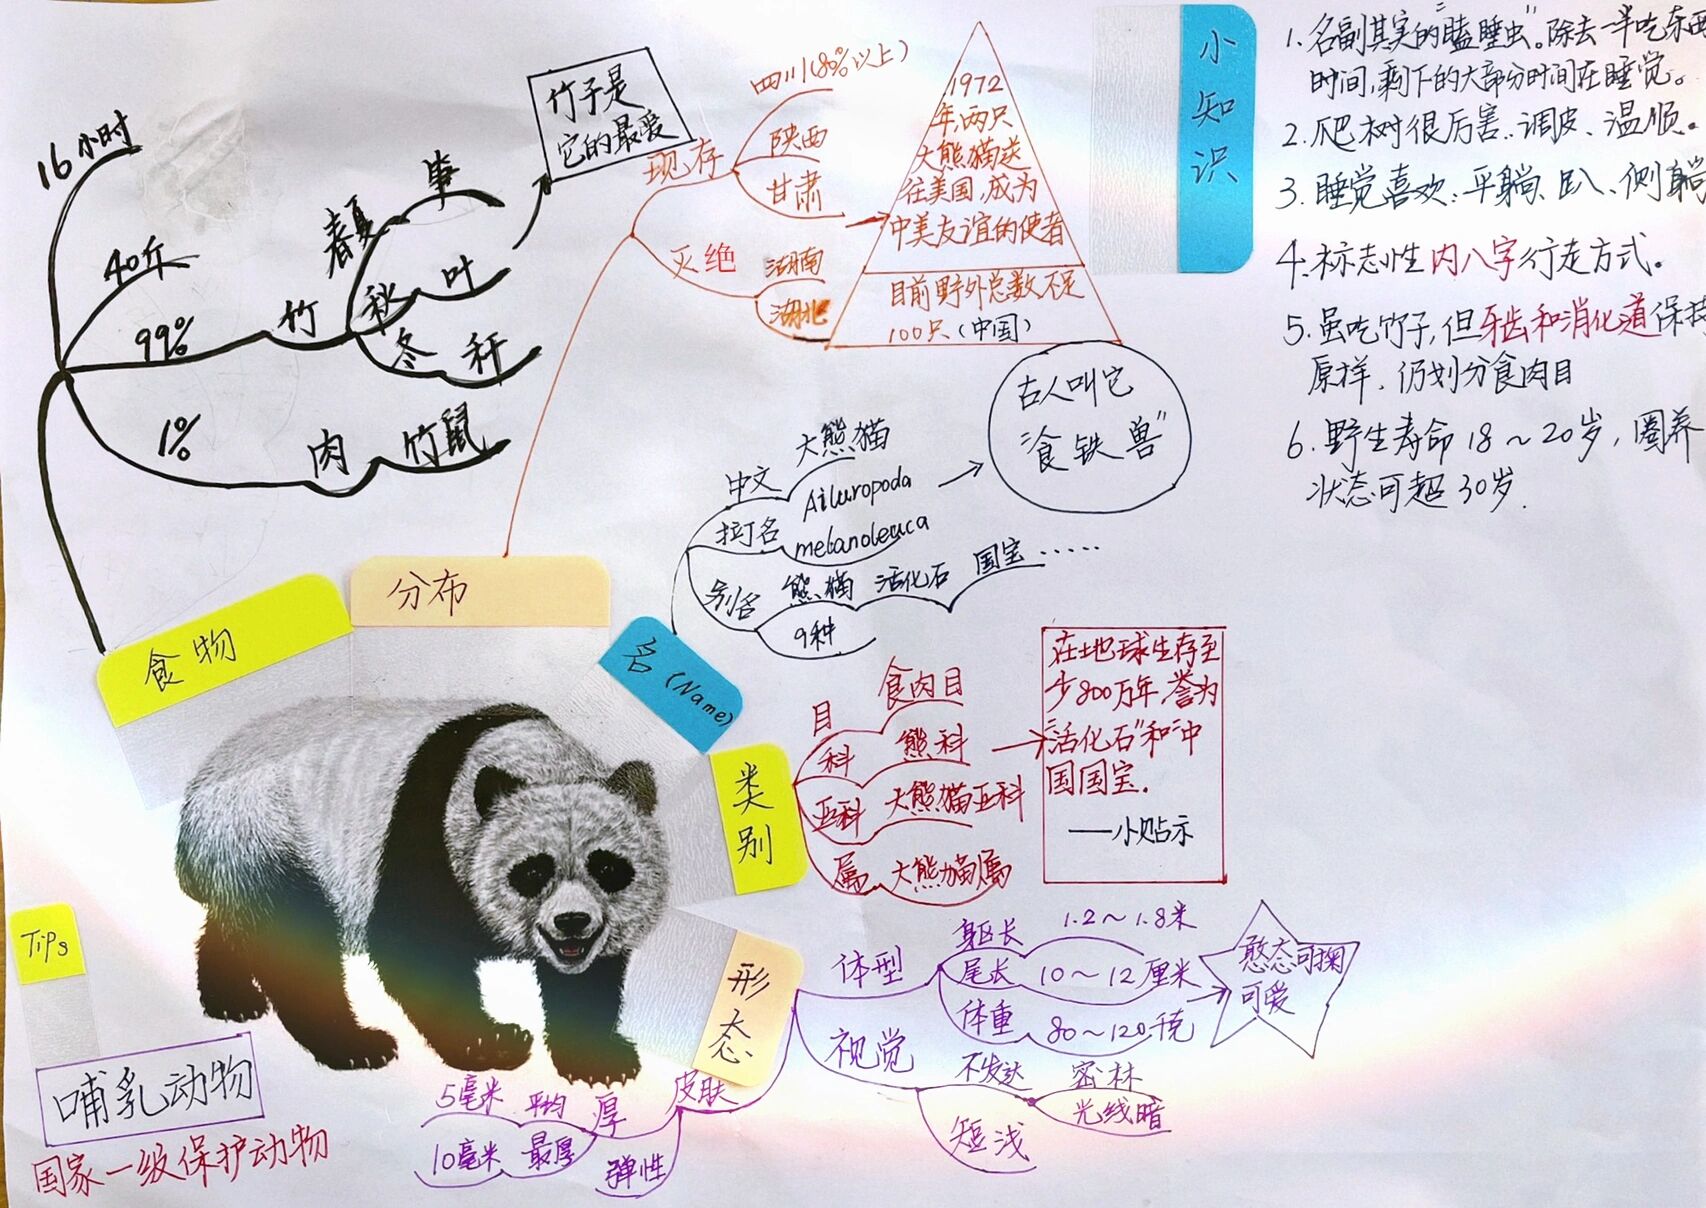 16小时
40斤
99%
竹
春夏
笋
秋
叶
冬
秆
1%
肉
竹鼠
竹子是
它的最爱
食物
分布
现存
四川(80%以上)
陕西
甘肃
灭绝
湖南
湖北
1972
年,两只
大熊猫送
往美国,成为
中美友谊的使者
目前野外总数不足
100只(中国)
名(Name)
中文
大熊猫
拉丁名
Ailuropoda
melanoleuca
别名
熊猫
活化石
国宝……
9种
古人叫它
“食铁兽”
类别
目
食肉目
科
熊科
亚科
大熊猫亚科
属
大熊猫属
在地球生存至
少800万年,誉为
“活化石”和“中
国国宝.
——小贴示
形态
体型
躯长
1.2~1.8米
尾长
10~12厘米
体重
80~120千克
憨态可掬
可爱
视觉
不发达
密林
光线暗
短浅
皮肤
厚
平均
5毫米
最厚
10毫米
弹性
Tips
哺乳动物
国家一级保护动物
小知识
1.名副其实的“瞌睡虫”。除去一半吃东西
时间,剩下的大部分时间在睡觉。
2.爬树很厉害..调皮、温顺。
3.睡觉喜欢:平躺、趴、侧躺
4.标志性内八字行走方式。
5.虽吃竹子,但牙齿和消化道保持
原样,仍划分食肉目
6.野生寿命18~20岁,圈养
状态可超30岁.